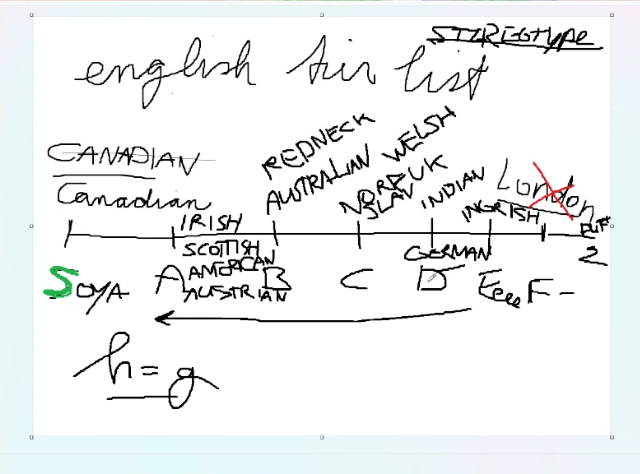 STEREOTYPE
english tier list
CANADIAN
Canadian
IRISH
SCOTTISH
AMERICAN
AUSTRIAN
REDNECK
AUSTRALIAN
WELSH
UK
SLAV
INDIAN
GERMAN
INGRISH
London
SOYA A B C D Eeee F-
h=g